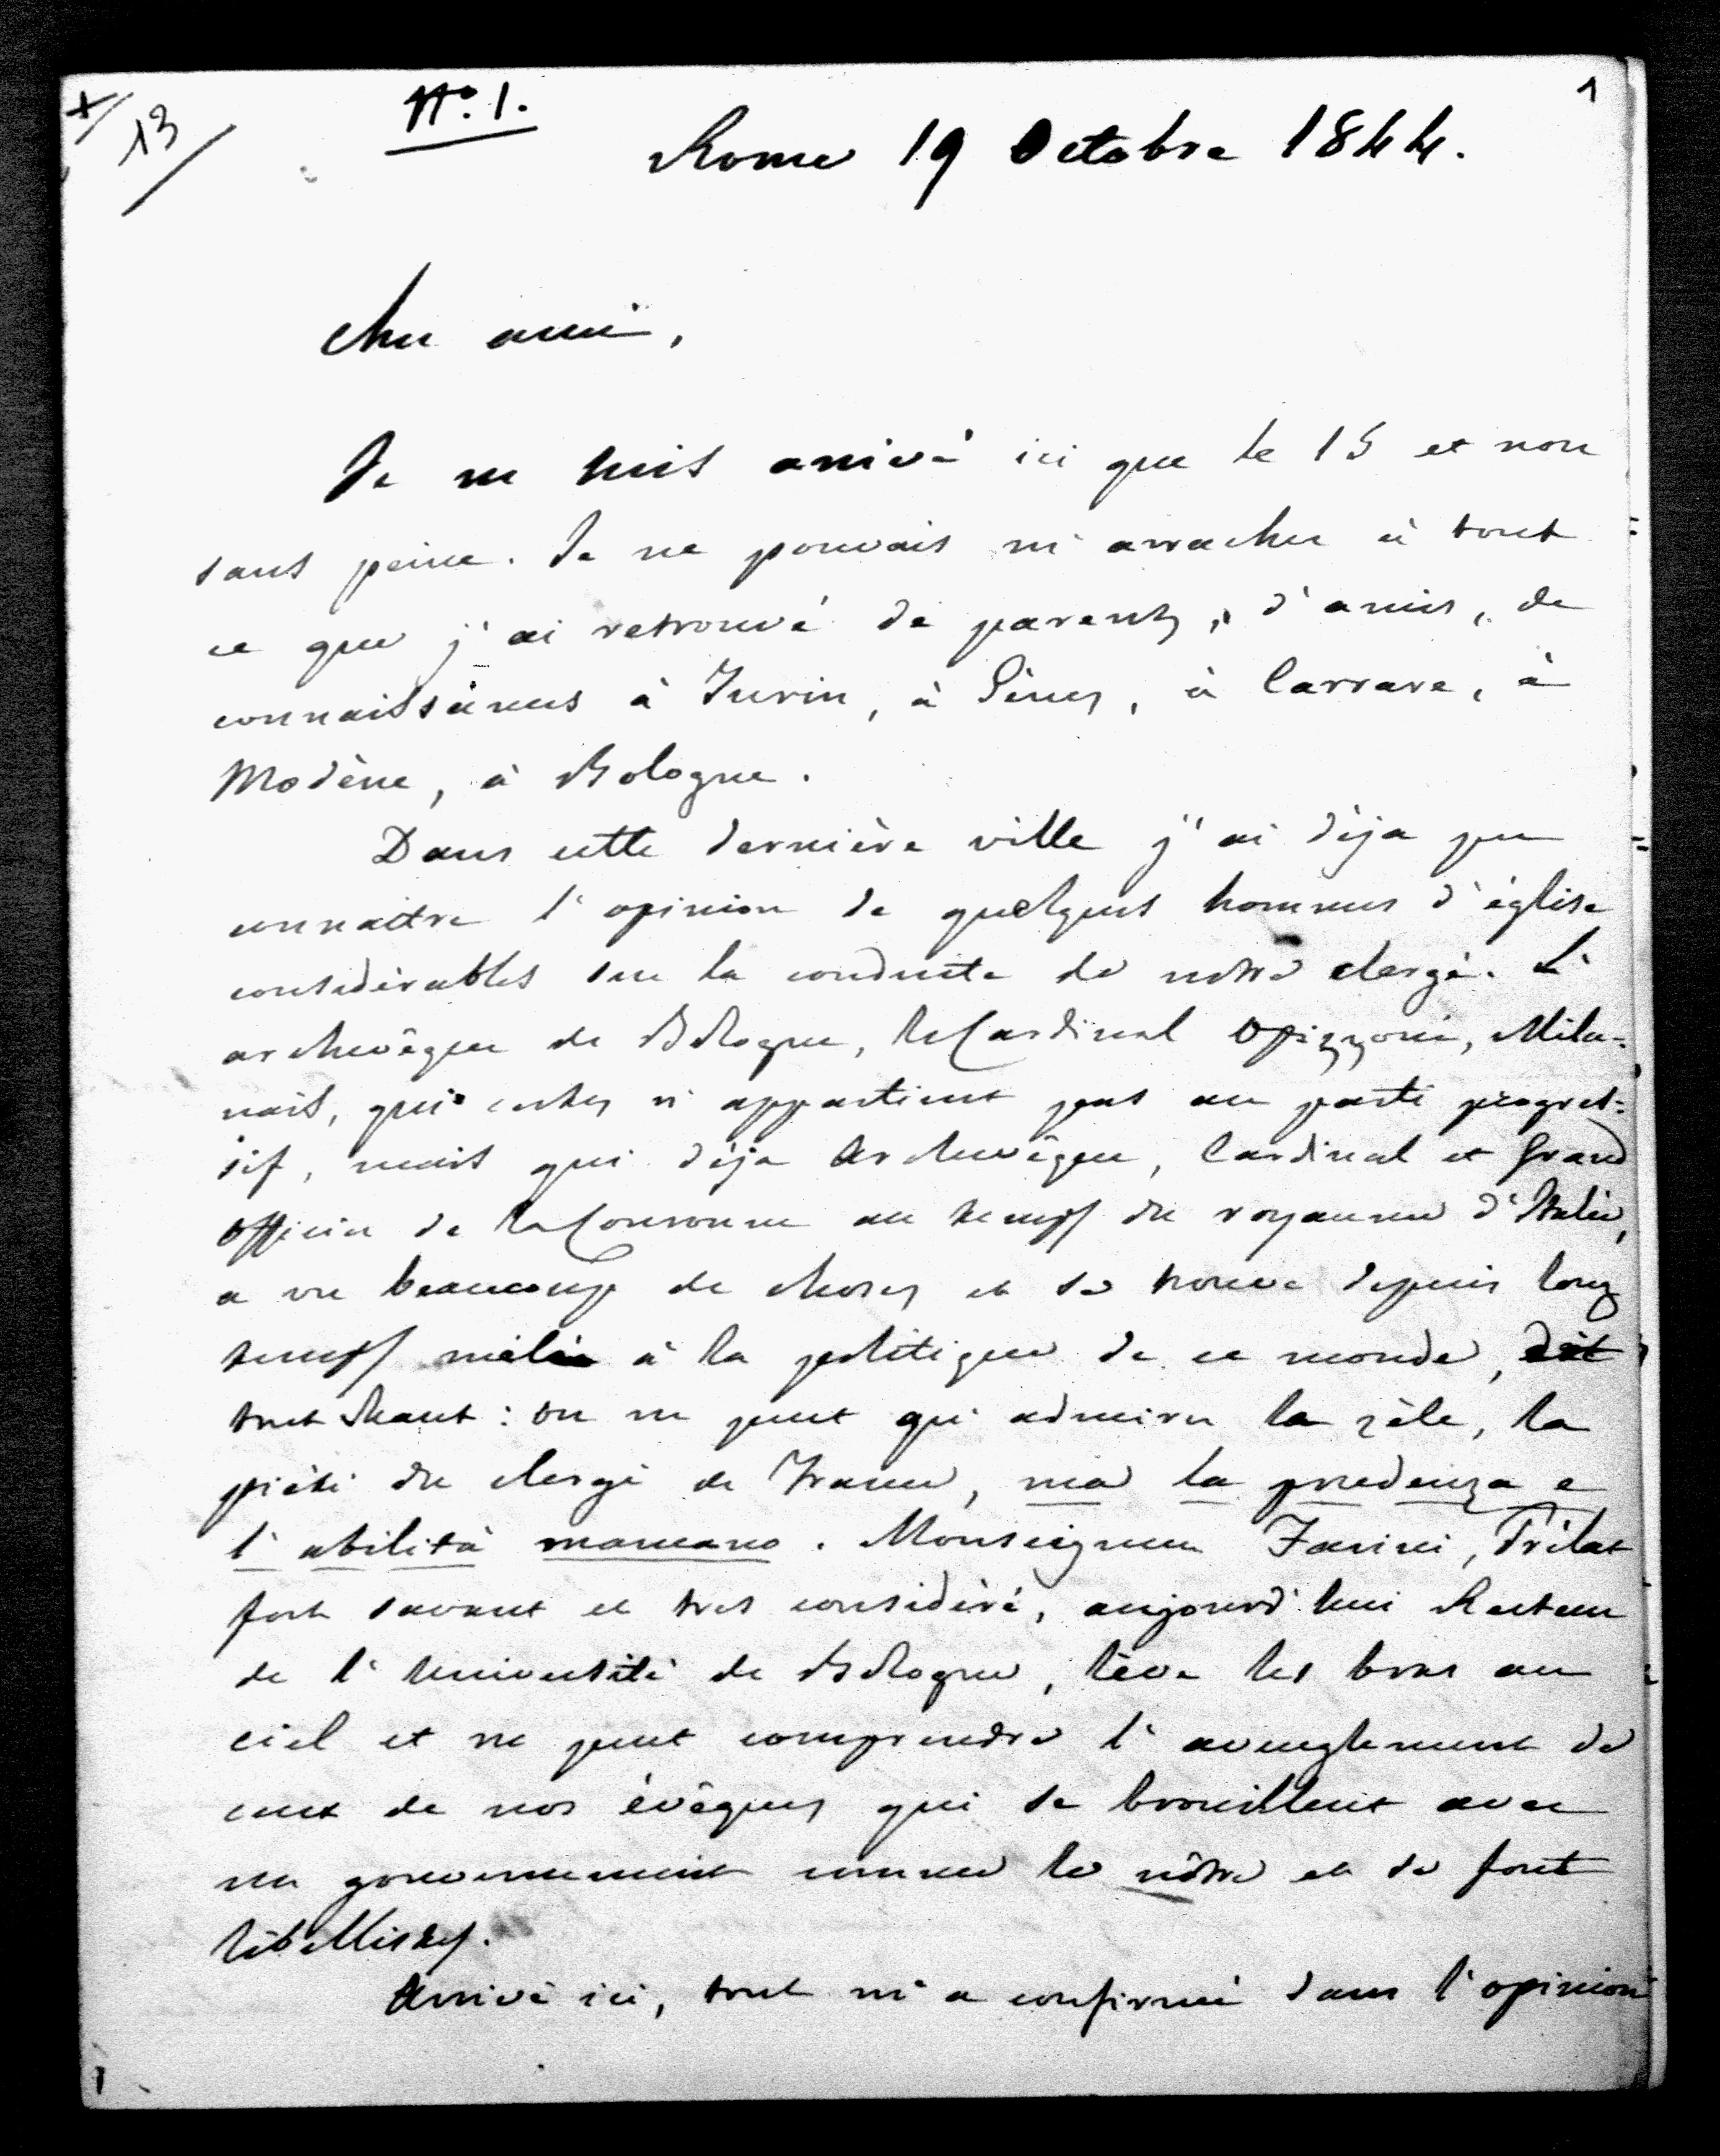 +/
13
N.º 1.
1
Rome 19 Octobre 1844.
Cher ami,
Je ne suis arrivé ici que le 15 et non
sans peine. Je ne pouvais m'arracher à tout
ce que j'ai retrouvé de parents, d'amis, de
connaissances à Turin, à Gênes, à Carrare, à
Modène, à Bologne.
Dans cette dernière ville j'ai déja pu
connaitre l'opinion de quelques hommes d'église
considérables sur la conduite de notre clergé. L'
archevêque de Bologne, le Cardinal Opizzoni, Mila-
nais, qui certes n'appartient pas au parti progres-
sif, mais qui déja Archevêque, Cardinal et Grand
Officier de la Couronne au temps du royaume d'Italie,
a vu beaucoup de choses et se trouve depuis long
temps mêlé à la politique de ce monde, dit
tout haut : on ne peut qu'admirer le zèle, la
piété du clergé de France, ma la prudenza e
l'abilità mancano. Monseigneur Farini, Prélat
fort savant et très considéré, aujourd'hui Recteur
de l'Université de Bologne, lève les bras au
ciel et ne peut comprendre l'aveuglement de
ceux de nos évêques qui se brouillent avec
un gouvernement comme le nôtre et se font
libellistes.
Arrivé ici, tout m'a confirmé dans l'opinion